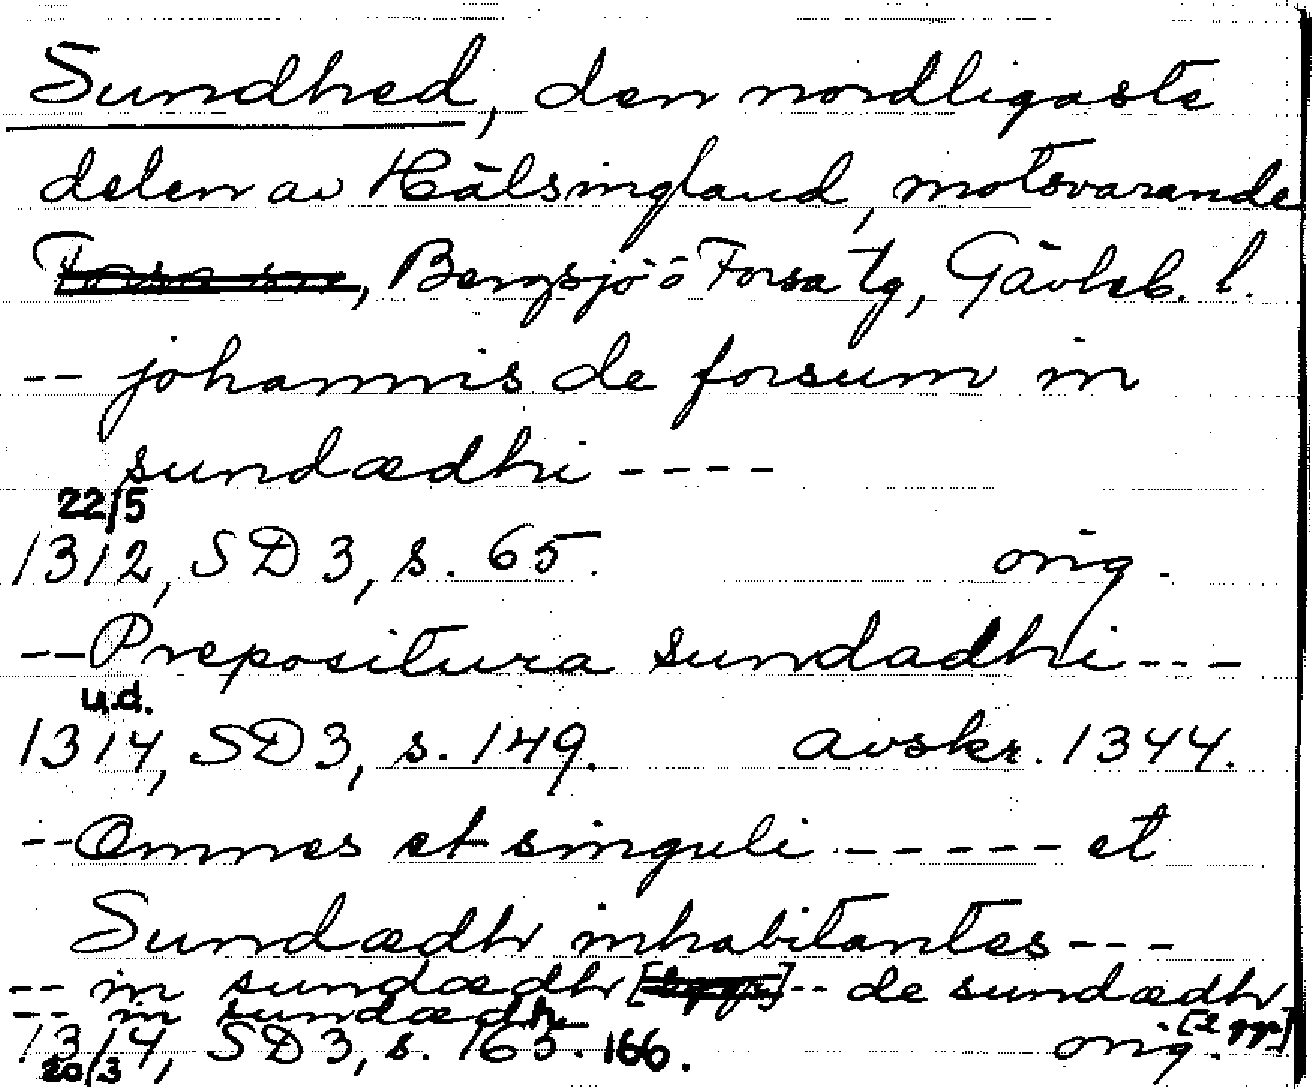 Sundhed, den nordligaste
delen av Hälsingland, motsvarande
Forsa sn, Bergsjö o Forsa tg, Gävleb. l.
-- johannis de forsum in
sundædhi ----
22/5
1312, SD 3, s. 65. orig.
-- Prepositura sundadhi ---
u.d.
1314, SD 3, s. 149. avskr. 1344.
-- Omnes et singuli ----- et
Sundædh inhabitantes ---
-- in sundædh [2 ggr] -- de sundædh
-- in sundædh [2 ggr]
1314, SD 3, s. 165. 166. orig.
20/3